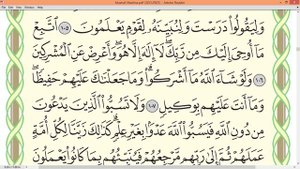 وَلِيَقُولُوا۟ دَرَسْتَ وَلِنُبَيِّنَهُۥ لِقَوْمٍ يَعْلَمُونَ ١٠٥ ٱتَّبِعْ
مَآ أُوحِىَ إِلَيْكَ مِن رَّبِّكَ لَآ إِلَٰهَ إِلَّا هُوَ وَأَعْرِضْ عَنِ ٱلْمُشْرِكِينَ
١٠٦ وَلَوْ شَآءَ ٱللَّهُ مَآ أَشْرَكُوا۟ وَمَا جَعَلْنَٰكَ عَلَيْهِمْ حَفِيظًا
وَمَآ أَنتَ عَلَيْهِم بِوَكِيلٍ ١٠٧ وَلَا تَسُبُّوا۟ ٱلَّذِينَ يَدْعُونَ
مِن دُونِ ٱللَّهِ فَيَسُبُّوا۟ ٱللَّهَ عَدْوًۢا بِغَيْرِ عِلْمٍ كَذَٰلِكَ زَيَّنَّا لِكُلِّ أُمَّةٍ
عَمَلَهُمْ ثُمَّ إِلَىٰ رَبِّهِم مَّرْجِعُهُمْ فَيُنَبِّئُهُم بِمَا كَانُوا۟ يَعْمَلُونَ